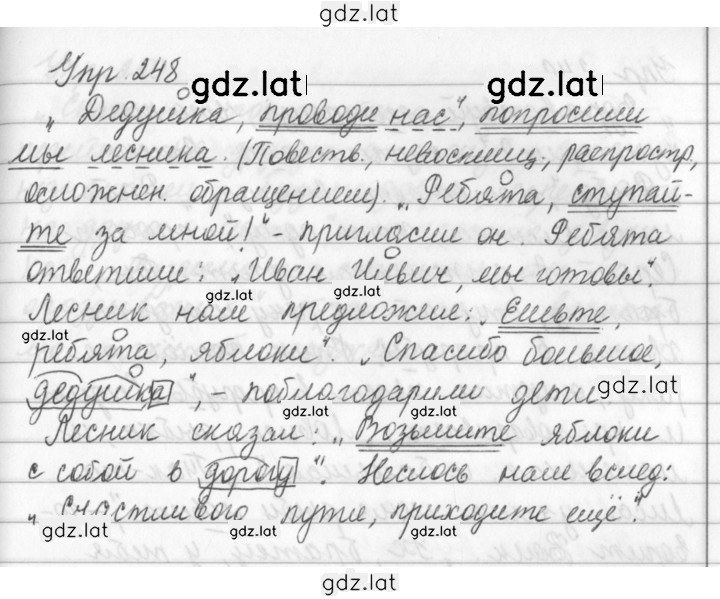 gdz.lat
Упр. 248
gdz.lat gdz.lat
„Дедушка, проводи нас", попросили
мы лесника. (Повеств., невосклиц., распростр,
осложнен. обращением). „Ребята, ступай-
те за мной!" - пригласил он. Ребята
ответили: „Иван Ильич, мы готовы".
gdz.lat gdz.lat
Лесник нам предложил: „Ешьте,
gdz.lat
ребята, яблоки". „Спасибо большое,
дедушка", - поблагодарили дети
gdz.lat gdz.lat
Лесник сказал: „Возьмите яблоки
с собой в дорогу". Неслось нам вслед:
„Счастливого пути, приходите ещё".
gdz.lat gdz.lat
gdz.lat